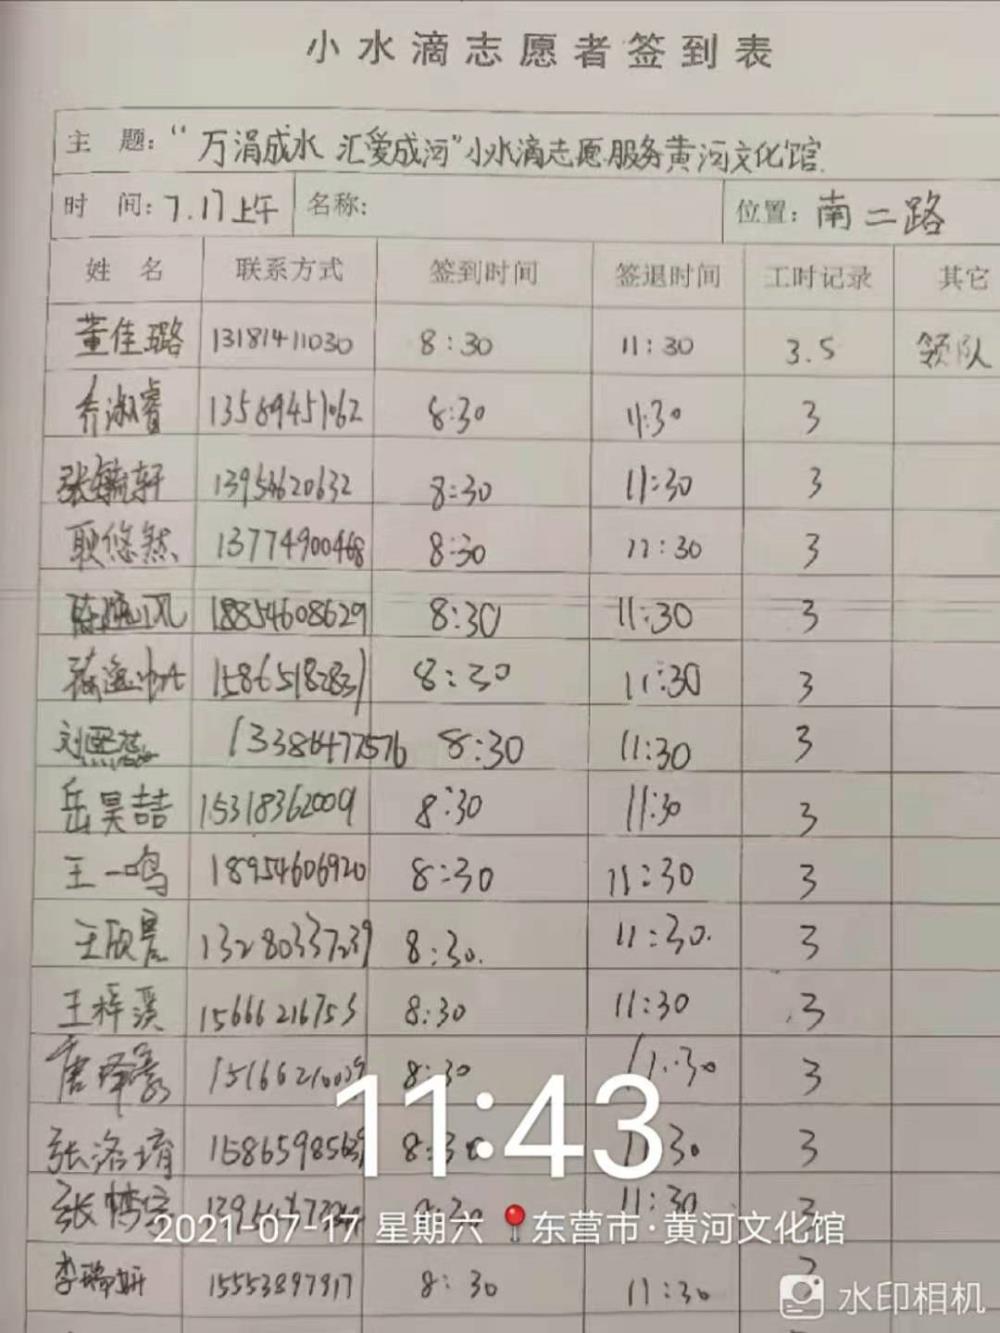 小水滴志愿者签到表
主 题：“万涓成水 汇爱成河”小水滴志愿服务黄河文化馆.
时 间：7.17上午 名称： 位置：南二路
姓 名 联系方式 签到时间 签退时间 工时记录 其它
董佳璐 13181411030 8:30 11:30 3.5 领队
乔淑睿 13589451062 8:30 11:30 3
张毓轩 13954620632 8:30 11:30 3
耿悠然 13774900468 8:30 11:30 3
18854608629 8:30 11:30 3
8:30 11:30 3
刘熙蕊 13386477576 8:30 11:30 3
岳昊喆 15318362009 8:30 11:30 3
王一鸣 18954606920 8:30 11:30 3
王欣 13280337239 8:30. 11:30. 3
王梓溪 15666216753 8:30 11:30 3
唐 8:30 11:30 3
张洛堉 8:30 11:30 3
张 8:30 11:30 3
李瑞妍 15553897917 8:30 11:30
11:43
2021-07-17 星期六 东营市·黄河文化馆
水印相机